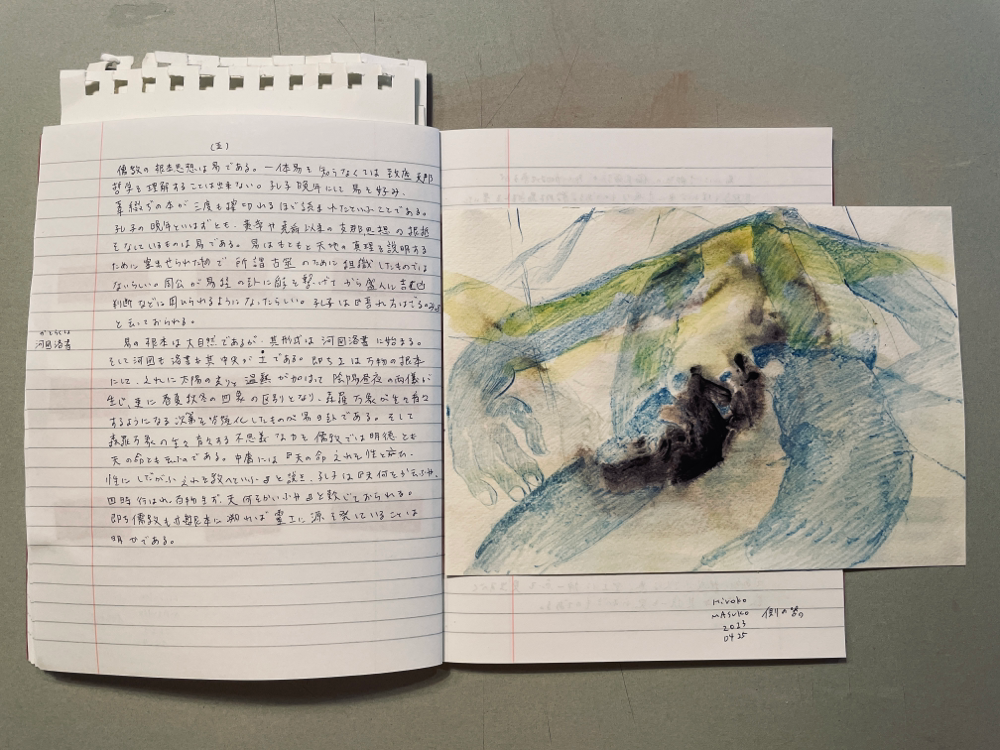 (五)
儒教の根本思想は易である。一体易を知らなくては 支那
哲学を理解することは出来ない。孔子 晩年にして易を好み、
韋編ぢの本が三度も擦切れるほど読まれたといふことである。
孔子の晩年といはずとも、黄帝や堯舜以来の支那思想の根柢
をなしているものは易である。易はもともと天地の真理を説明する
ために案出せられた物で 所謂占筮のために組織したものでは
ないらしい。周公が易経の卦に辞を繋げてから盛んに吉凶
判断などに用ひられるようになったらしい。孔子は『吾れ占はざるのみ』
と云ておられる。
かとらくしょ
河図洛書
易の根本は大自然であるが、其形式は河図洛書に始まる。
そして河図も洛書も其中央が土である。即ち土は万物の根本
にして、之れに太陽の光りと温熱が加はって陰陽昼夜の両儀が
生じ、更に春夏秋冬の四象の区別となり、森羅万象が生々育々
するようになる次第を 化したものが易の卦である。そして
森羅万象の生々育々する不思議な力を儒教では明徳とも
天の命とも云ふのである。中庸には『天の命之れを性と云ひ、
性にしたがふ之れを教へといふ』と説き、孔子は『天何をか云ふや、
四時行はれ、百物生ず、天何をかいふや』と歎じておられる。
即ち儒教も其根本に溯れば霊土に源を発していることは
明かである。
Hiroko
MASUKO
2023
04 25